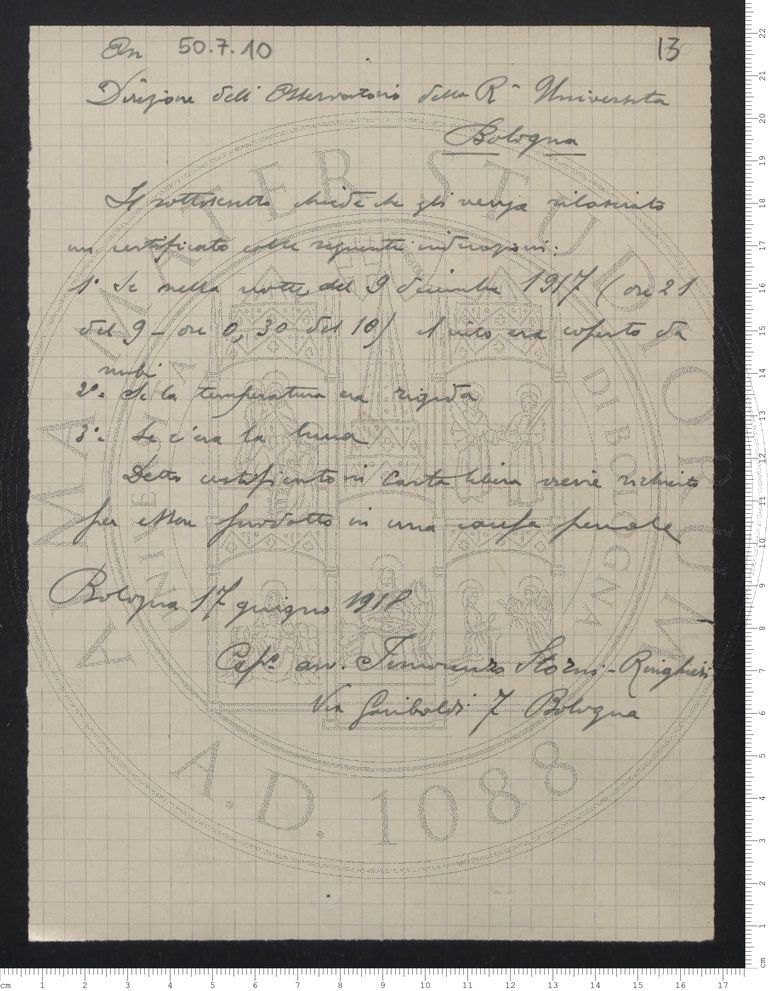 On 50.7.10 13
Direzione dell'Osservatorio della Rª Università
Bologna
Il sottoscritto chiede che gli venga rilasciato
un certificato colle seguenti indicazioni:
1º Se nella notte del 9 dicembre 1917 (ore 21
del 9 – ore 0,30 del 10) il cielo era coperto da
nubi
2º. Se la temperatura era rigida
3º: Se c'era la luna
Detto certificato in carta libera viene richiesto
per essere prodotto in una causa penale
Bologna 17 giugno 1918
Capº avv. Storni-Ringhieri
Via Garibaldi 7 Bologna
ALMA MATER STUDIORUM
UNIVERSITÀ DI BOLOGNA
A.D. 1088